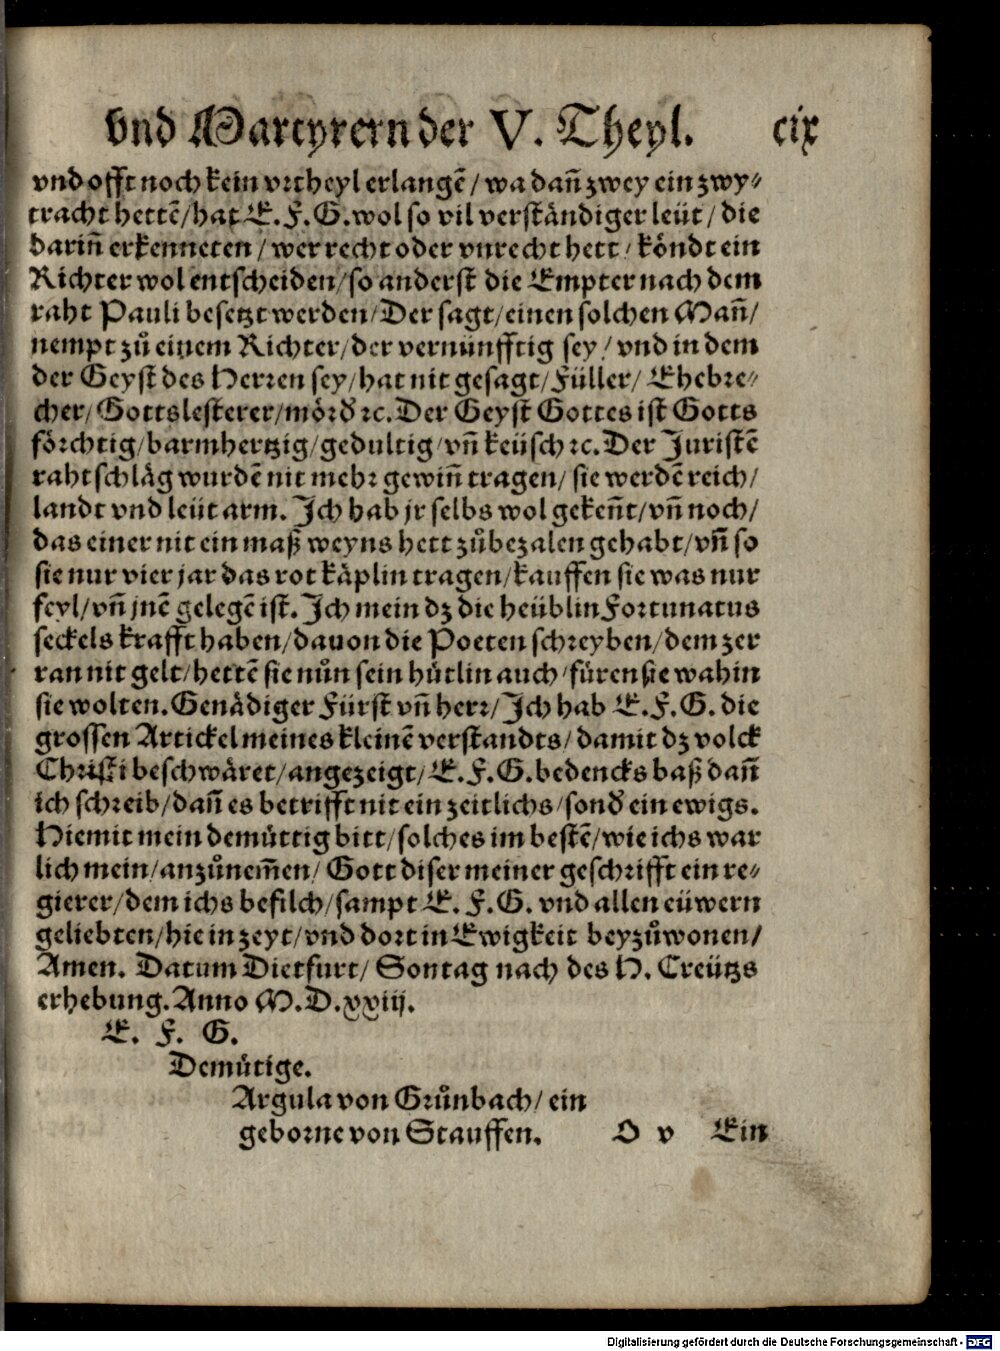 vnd Martyrern der V. Theyl. cix
vnd offt noch kein vrtheyl erlangẽ / wa dañ zwey ein zwy⸗
tracht hettẽ / hat E. F. G. wol so vil verständiger leüt / die
dariñ erkenneten / wer recht oder vnrecht hett / köndt ein
Richter wol entscheiden / so anderst die Empter nach dem
raht Pauli besetzt werden / Der sagt / einen solchen Mañ /
nempt zů einem Richter / der vernünfftig sey / vnd in dem
der Geyst des Herren sey / hat nit gesagt / Füller / Ehebre⸗
cher / Gottslesterer / mörd ꝛc. Der Geyst Gottes ist Gotts
förchtig / barmhertzig / gedultig / vñ keüsch ꝛc. Der Juristẽ
rahtschläg wurdẽ nit mehr gewiñ tragen / sie werdẽ reich /
landt vnd leüt arm. Ich hab jr selbs wol gekeñt / vñ noch /
das einer nit ein maß weyns hett zůbezalen gehabt / vñ so
sie nur vier jar das rot käplin tragen / kauffen sie was nur
feyl / vñ jnẽ gelegẽ ist. Ich mein dz die heüblin Fortunatus
seckels krafft haben / dauon die Poeten schreyben / dem zer
ran nit gelt / hettẽ sie nůn sein hütlin auch / füren sie wahin
sie wolten. Genädiger Fürst vñ herr / Ich hab E. F. G. die
grossen Artickel meines kleinẽ verstandts / damit dz volck
Christi beschwäret / angezeigt / E. F. G. bedencks baß dañ
ich schreib / dañ es betrifft nit ein zeitlichs / sond ein ewigs.
Hiemit mein demüttig bitt / solches im bestẽ / wie ichs war
lich mein / anzůnem̃en / Gott diser meiner geschrifft ein re⸗
gierer / dem ichs befilch / sampt E. F. G. vnd allen eüwern
geliebten / hie in zeyt / vnd dort in Ewigkeit beyzůwonen /
Amen. Datum Dietfurt / Sontag nach des H. Creützs
erhebung. Anno M. D. xxiij.
E. F. G.
Demütige.
Argula von Grůnbach / ein
geborne von Stauffen. O v Ein
Digitalisierung gefördert durch die Deutsche Forschungsgemeinschaft - DFG